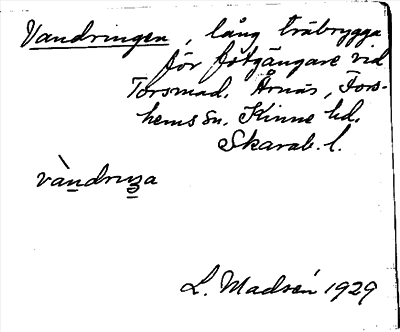 Vandringen, lång träbrygga
för fotgängare vid
Torsmad. Årnäs, Fors-
hems sn. Kinne hd.
Skarab. l.
vàndruṉa
L. Madsén 1929